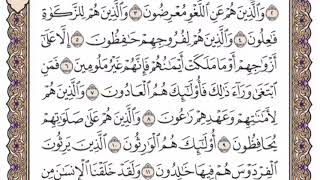 ٢ وَٱلَّذِينَ هُمْ عَنِ ٱللَّغْوِ مُعْرِضُونَ ٣ وَٱلَّذِينَ هُمْ لِلزَّكَوٰةِ
فَٰعِلُونَ ٤ وَٱلَّذِينَ هُمْ لِفُرُوجِهِمْ حَٰفِظُونَ ٥ إِلَّا عَلَىٰٓ
أَزْوَٰجِهِمْ أَوْ مَا مَلَكَتْ أَيْمَٰنُهُمْ فَإِنَّهُمْ غَيْرُ مَلُومِينَ ٦ فَمَنِ
ٱبْتَغَىٰ وَرَآءَ ذَٰلِكَ فَأُو۟لَٰٓئِكَ هُمُ ٱلْعَادُونَ ٧ وَٱلَّذِينَ هُمْ
لِأَمَٰنَٰتِهِمْ وَعَهْدِهِمْ رَٰعُونَ ٨ وَٱلَّذِينَ هُمْ عَلَىٰ صَلَوَٰتِهِمْ
يُحَافِظُونَ ٩ أُو۟لَٰٓئِكَ هُمُ ٱلْوَٰرِثُونَ ١٠ ٱلَّذِينَ يَرِثُونَ
ٱلْفِرْدَوْسَ هُمْ فِيهَا خَٰلِدُونَ ١١ وَلَقَدْ خَلَقْنَا ٱلْإِنسَٰنَ مِن